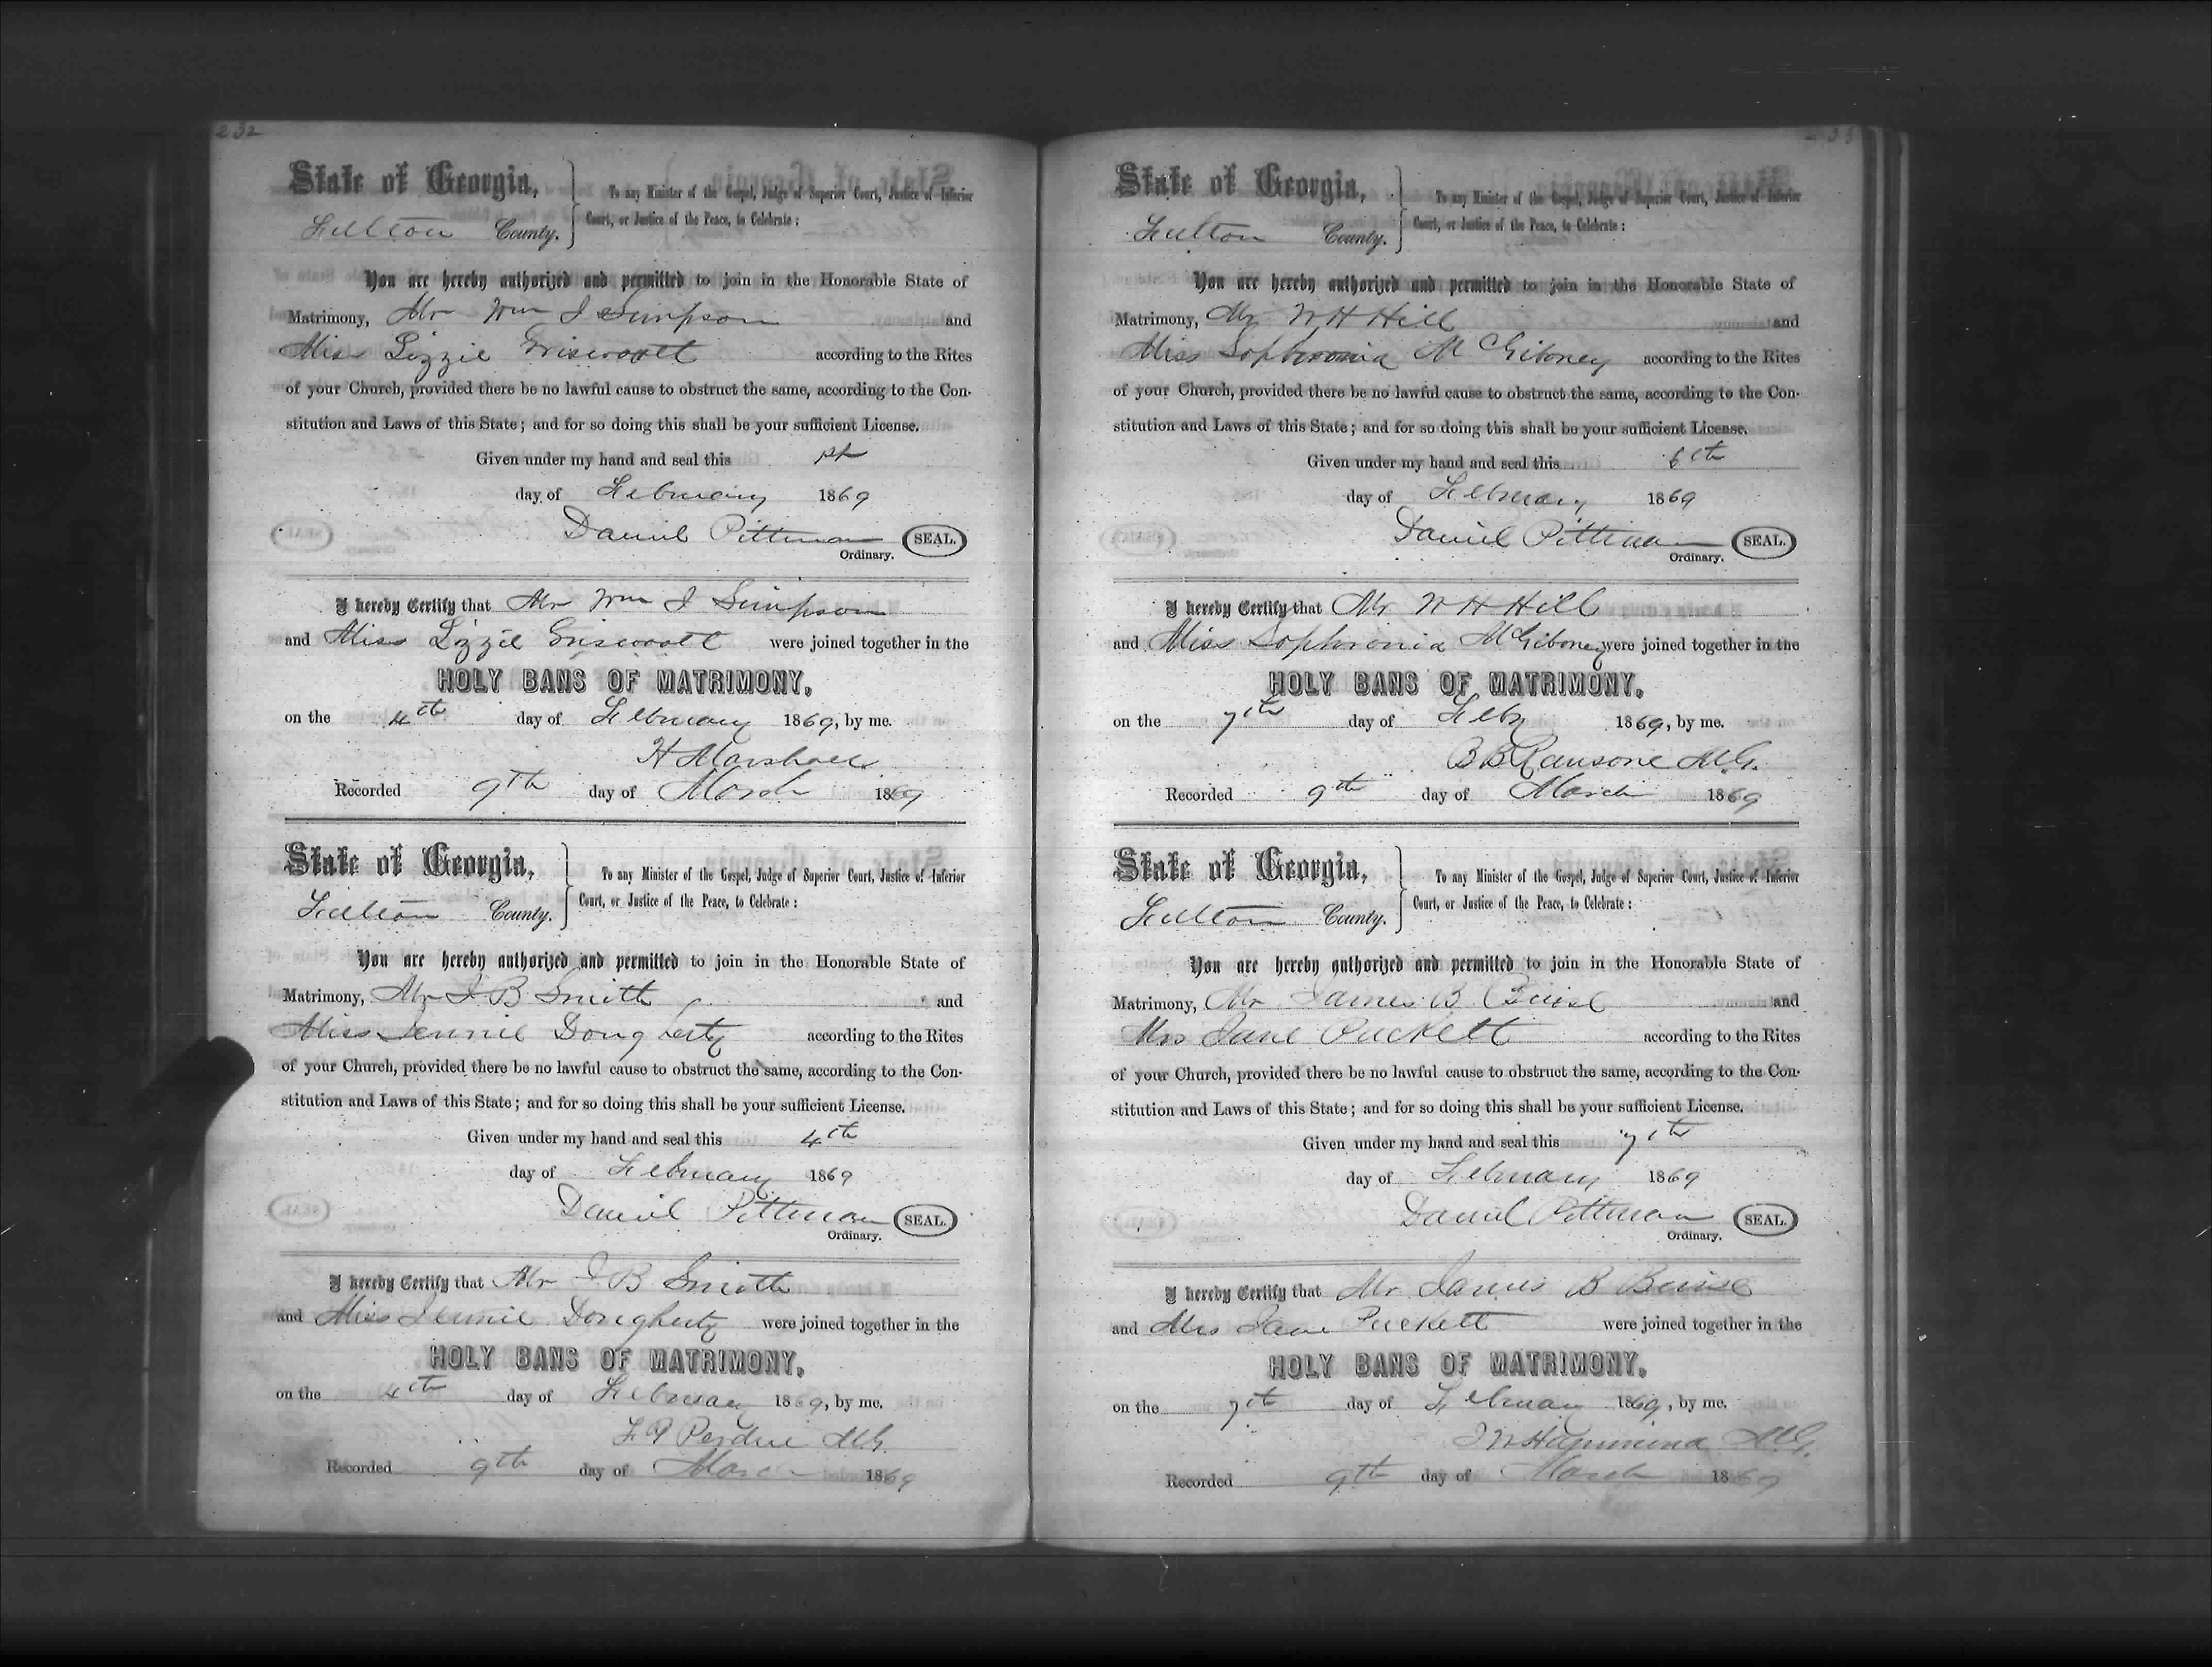 232
State of Georgia,
Fulton County.
To any Minister of the Gospel, Judge of Superior Court, Justice of Inferior
Court, or Justice of the Peace, to Celebrate:
You are hereby authorized and permitted to join in the Honorable State of
Matrimony, Mr Wm J Simpson and
Miss Lizzie according to the Rites
of your Church, provided there be no lawful cause to obstruct the same, according to the Con-
stitution and Laws of this State; and for so doing this shall be your sufficient License.
Given under my hand and seal this 1st
day of February 1869
Daniel Pittman SEAL.
Ordinary.
I hereby Certify that Mr Wm J Simpson
and Miss Lizzie were joined together in the
HOLY BANS OF MATRIMONY,
on the 4th day of February 1869, by me.
H Marshall
Recorded 9th day of March 1869
State of Georgia,
Fulton County.
To any Minister of the Gospel, Judge of Superior Court, Justice of Inferior
Court, or Justice of the Peace, to Celebrate:
You are hereby authorized and permitted to join in the Honorable State of
Matrimony, Mr J B Smith and
Miss Jennie Dougherty according to the Rites
of your Church, provided there be no lawful cause to obstruct the same, according to the Con-
stitution and Laws of this State; and for so doing this shall be your sufficient License.
Given under my hand and seal this 4th
day of February 1869
Daniel Pittman SEAL.
Ordinary.
I hereby Certify that Mr J B Smith
and Miss Jennie Dougherty were joined together in the
HOLY BANS OF MATRIMONY,
on the 4th day of February 1869, by me.
Perdue M.G.
Recorded 9th day of March 1869
233
State of Georgia,
Fulton County.
To any Minister of the Gospel, Judge of Superior Court, Justice of Inferior
Court, or Justice of the Peace, to Celebrate:
You are hereby authorized and permitted to join in the Honorable State of
Matrimony, Mr W H Hill and
Miss Sophronia McGiboney according to the Rites
of your Church, provided there be no lawful cause to obstruct the same, according to the Con-
stitution and Laws of this State; and for so doing this shall be your sufficient License.
Given under my hand and seal this 6th
day of February 1869
Daniel Pittman SEAL.
Ordinary.
I hereby Certify that Mr W H Hill
and Miss Sophronia McGiboney were joined together in the
HOLY BANS OF MATRIMONY,
on the 7th day of Feby 1869, by me.
B B Ransone M.G.
Recorded 9th day of March 1869
State of Georgia,
Fulton County.
To any Minister of the Gospel, Judge of Superior Court, Justice of Inferior
Court, or Justice of the Peace, to Celebrate:
You are hereby authorized and permitted to join in the Honorable State of
Matrimony, Mr James B and
Mrs Jane Puckett according to the Rites
of your Church, provided there be no lawful cause to obstruct the same, according to the Con-
stitution and Laws of this State; and for so doing this shall be your sufficient License.
Given under my hand and seal this 7th
day of February 1869
Daniel Pittman SEAL.
Ordinary.
I hereby Certify that Mr James B
and Mrs Jane Puckett were joined together in the
HOLY BANS OF MATRIMONY,
on the 7th day of February 1869, by me.
M.G.
Recorded 9th day of March 1869